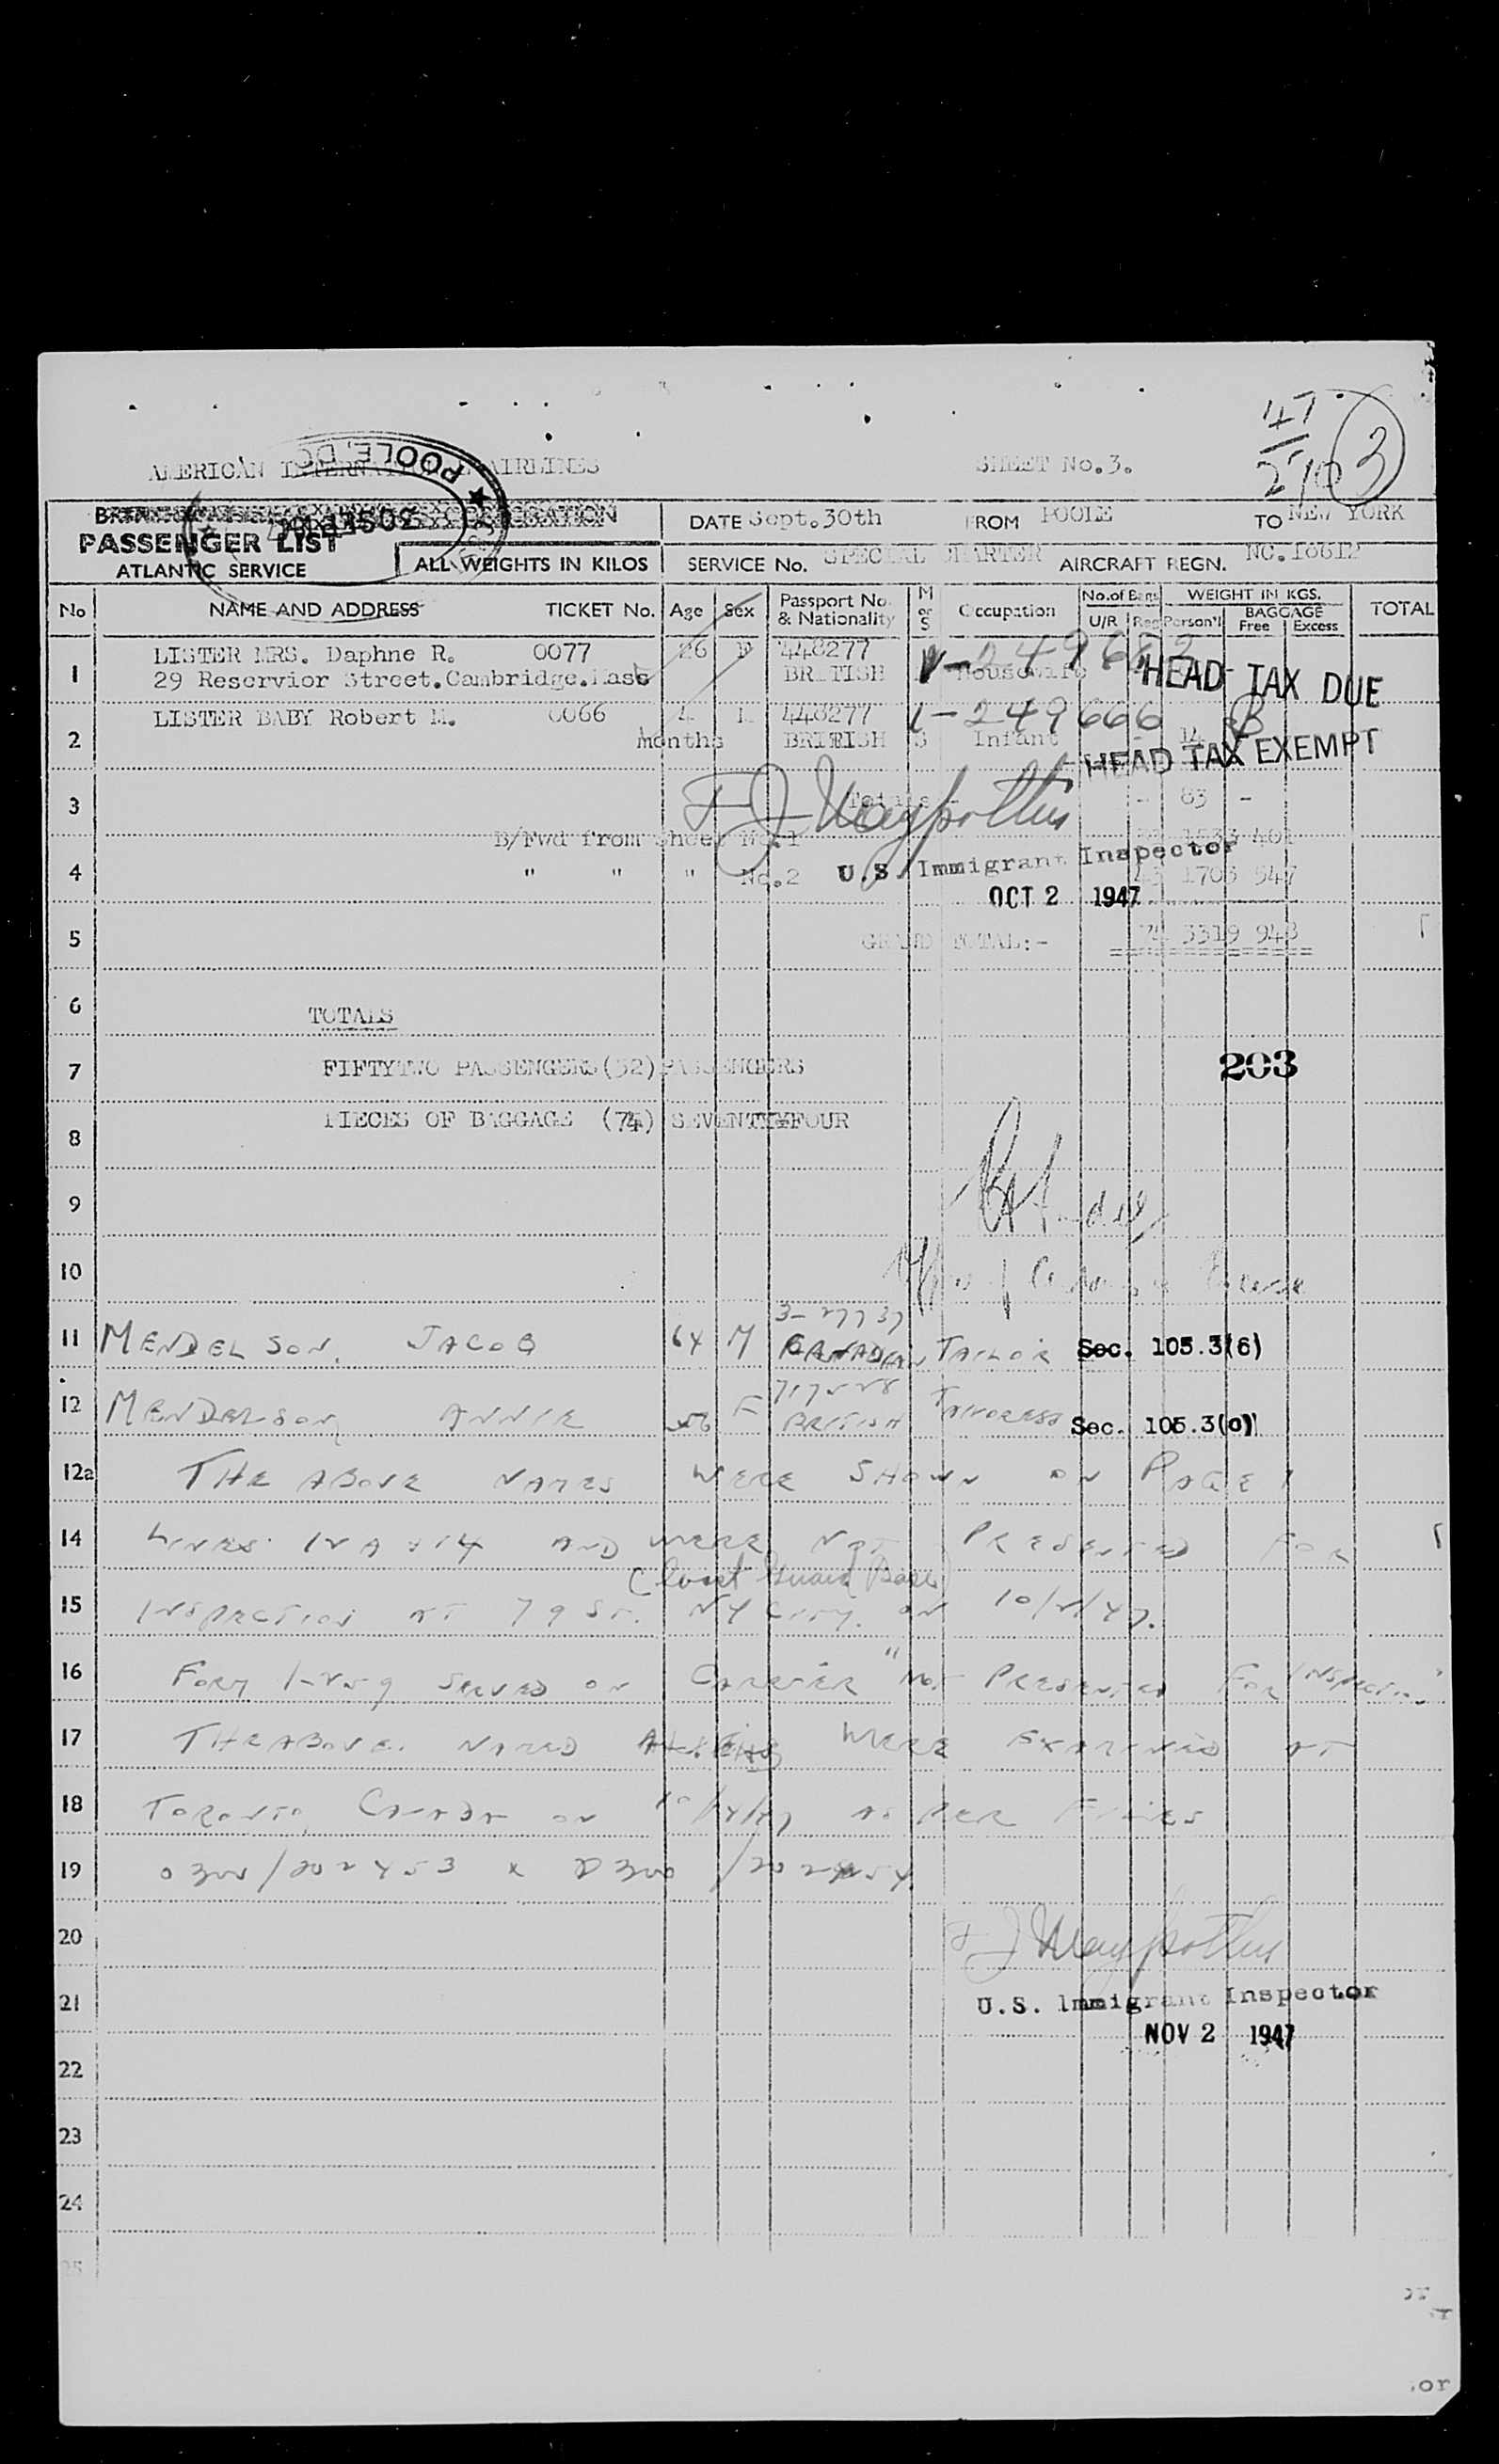 47
2/10 3
AMERICAN AIRLINES SHEET No.3.
POOLE
PASSENGER LIST
ATLANTIC SERVICE
ALL WEIGHTS IN KILOS
DATE Sept.30th FROM POOLE TO NEW YORK
SERVICE No. SPECIAL CHARTER AIRCRAFT REGN. NC.18612
No NAME AND ADDRESS TICKET No. Age Sex Passport No. & Nationality M or S Occupation No.of Bags U/R Reg WEIGHT IN KGS. Person'l BAGGAGE Free Excess TOTAL
1 LISTER MRS. Daphne R. 0077 26 F 448277
29 Reservior Street.Cambridge.Mass BRITISH Housewife HEAD TAX DUE
2 LISTER BABY Robert M. 0066 4 448277 249666
months BRITISH S Infant 14 HEAD TAX EXEMPT
3 Totals - 83 -
B/Fwd from Sheet No.1 1533 401
4 " " " No.2 1703 547
U.S. Immigrant Inspector
OCT 2 1947
5 GRAND TOTAL:- 74 3319 948
6 TOTALS
7 FIFTYTWO PASSENGERS(52)PASSENGERS 203
8 PIECES OF BAGGAGE (74) SEVENTYFOUR
9
10
3-27737
11 MENDELSON, JACOB 64 M CANADIAN TAILOR Sec. 105.3(6)
12 MENDELSON ANNIE 56 F BRITISH TAILORESS Sec. 105.3(c)
12a THE ABOVE NAMES WERE SHOWN ON PAGE 1
14 LINES AND WERE NOT PRESENTED FOR
(Coast Guard Base)
15 INSPECTION AT 79 ST. NY CITY. ON 10/2/47.
16 FORM I-259 SERVED ON CARRIER "NOT PRESENTED FOR INSPECTION"
17 THE ABOVE NAMED ALIENS WERE EXAMINED AT
18 TORONTO, CANADA ON AS PER FILES
19 0300/202453 & 0300/202454.
20
21 U.S. Immigrant Inspector
NOV 2 1947
22
23
24
25